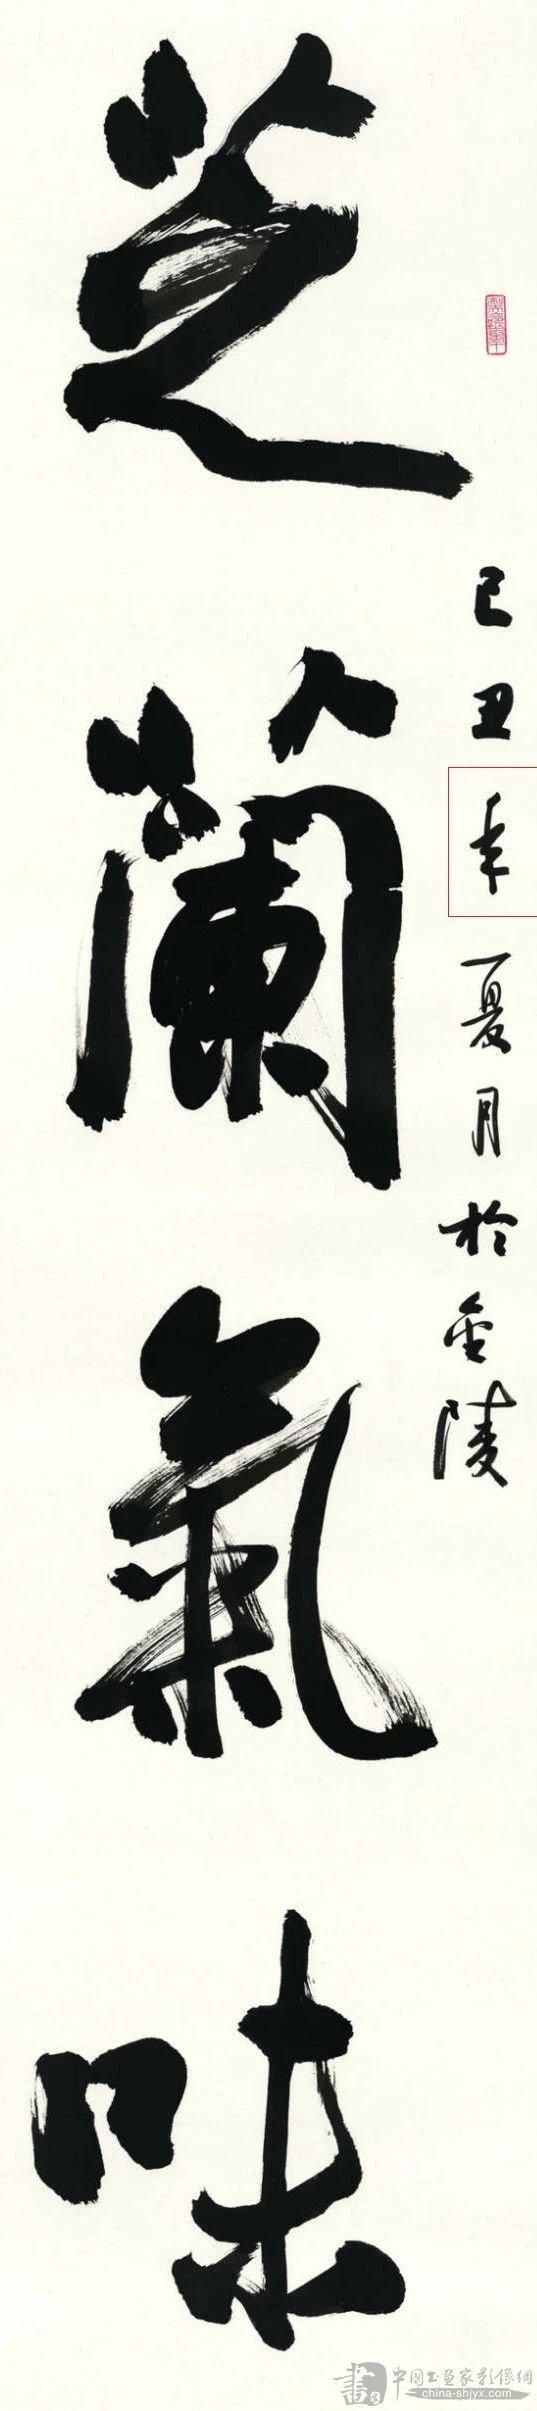 芝蘭氣味
己丑年夏月於金陵
書 中国书画家影像網
china-shjyx.com